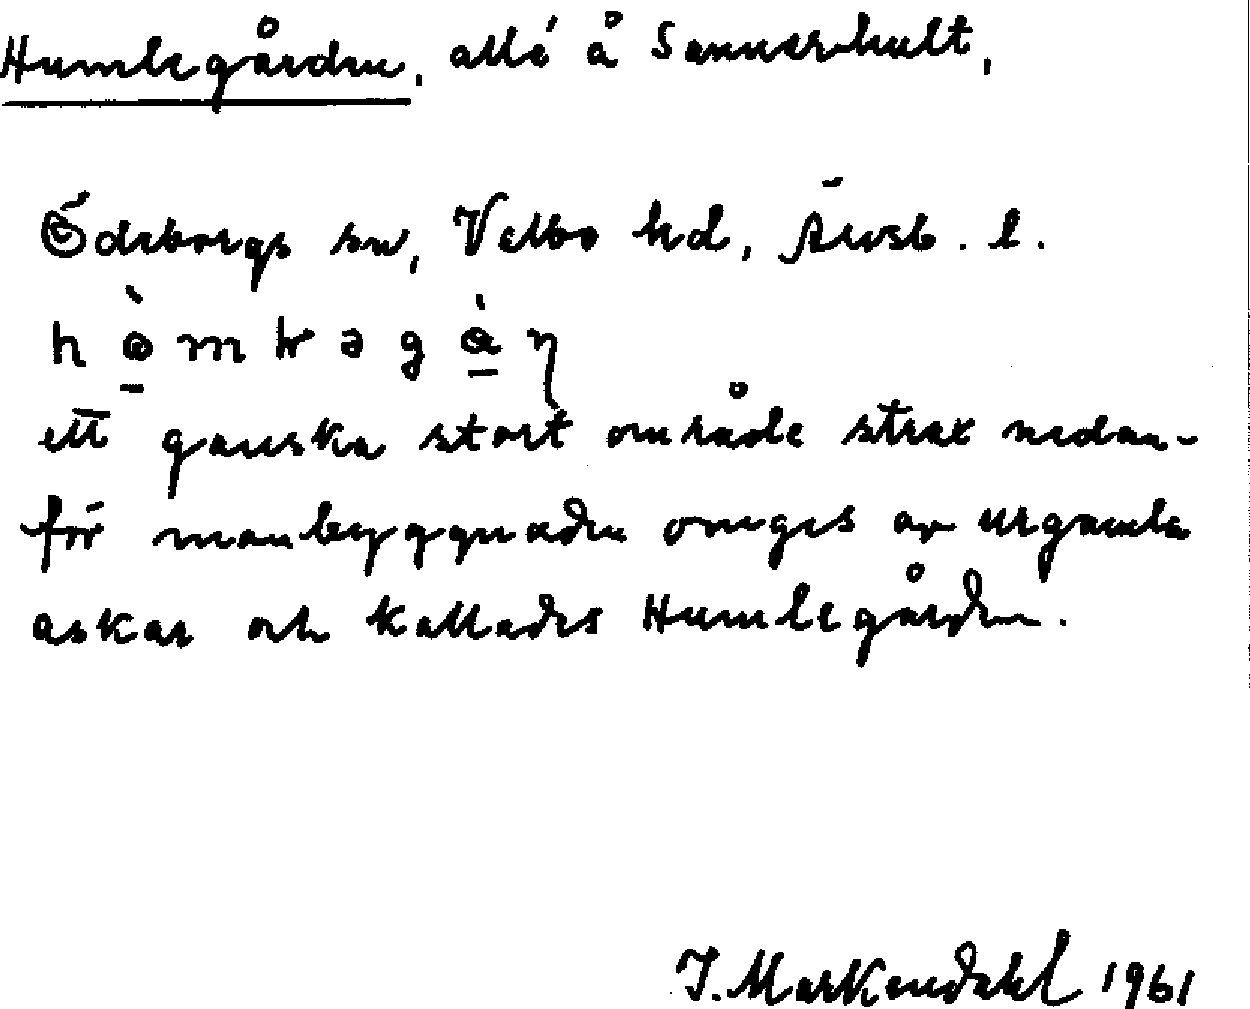 Humlegården, allé å Sannerhult,
Ödeborgs sn, Valbo hd, Älvsb. l.
ett ganska stort område strax nedan-
för manbyggnaden omges av urgamla
askar och kallades Humlegården.
J. Markendahl 1961